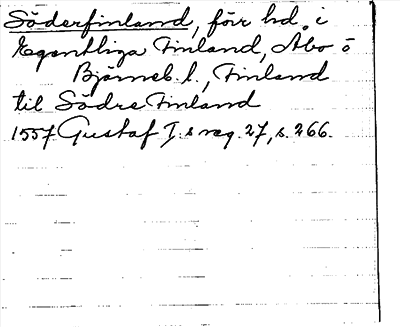 Söderfinland, förr hd. i
Egentliga Finland, Åbo o
Björneb. l., Finland
til Södre Finland
1557 Gustaf I.s reg. 27, s. 266.